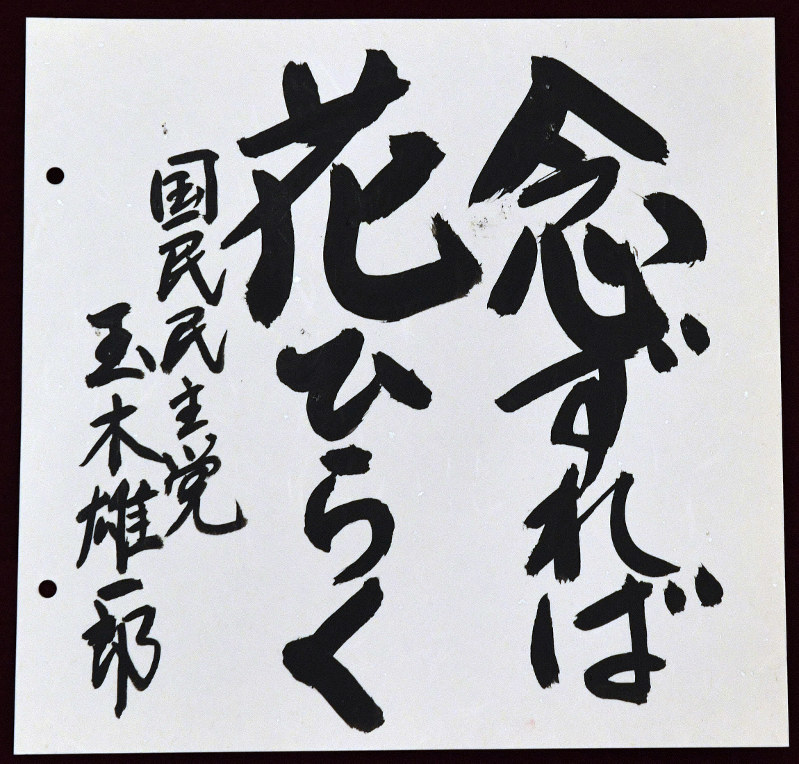 念ずれば
花ひらく
国民民主党
玉木雄一郎